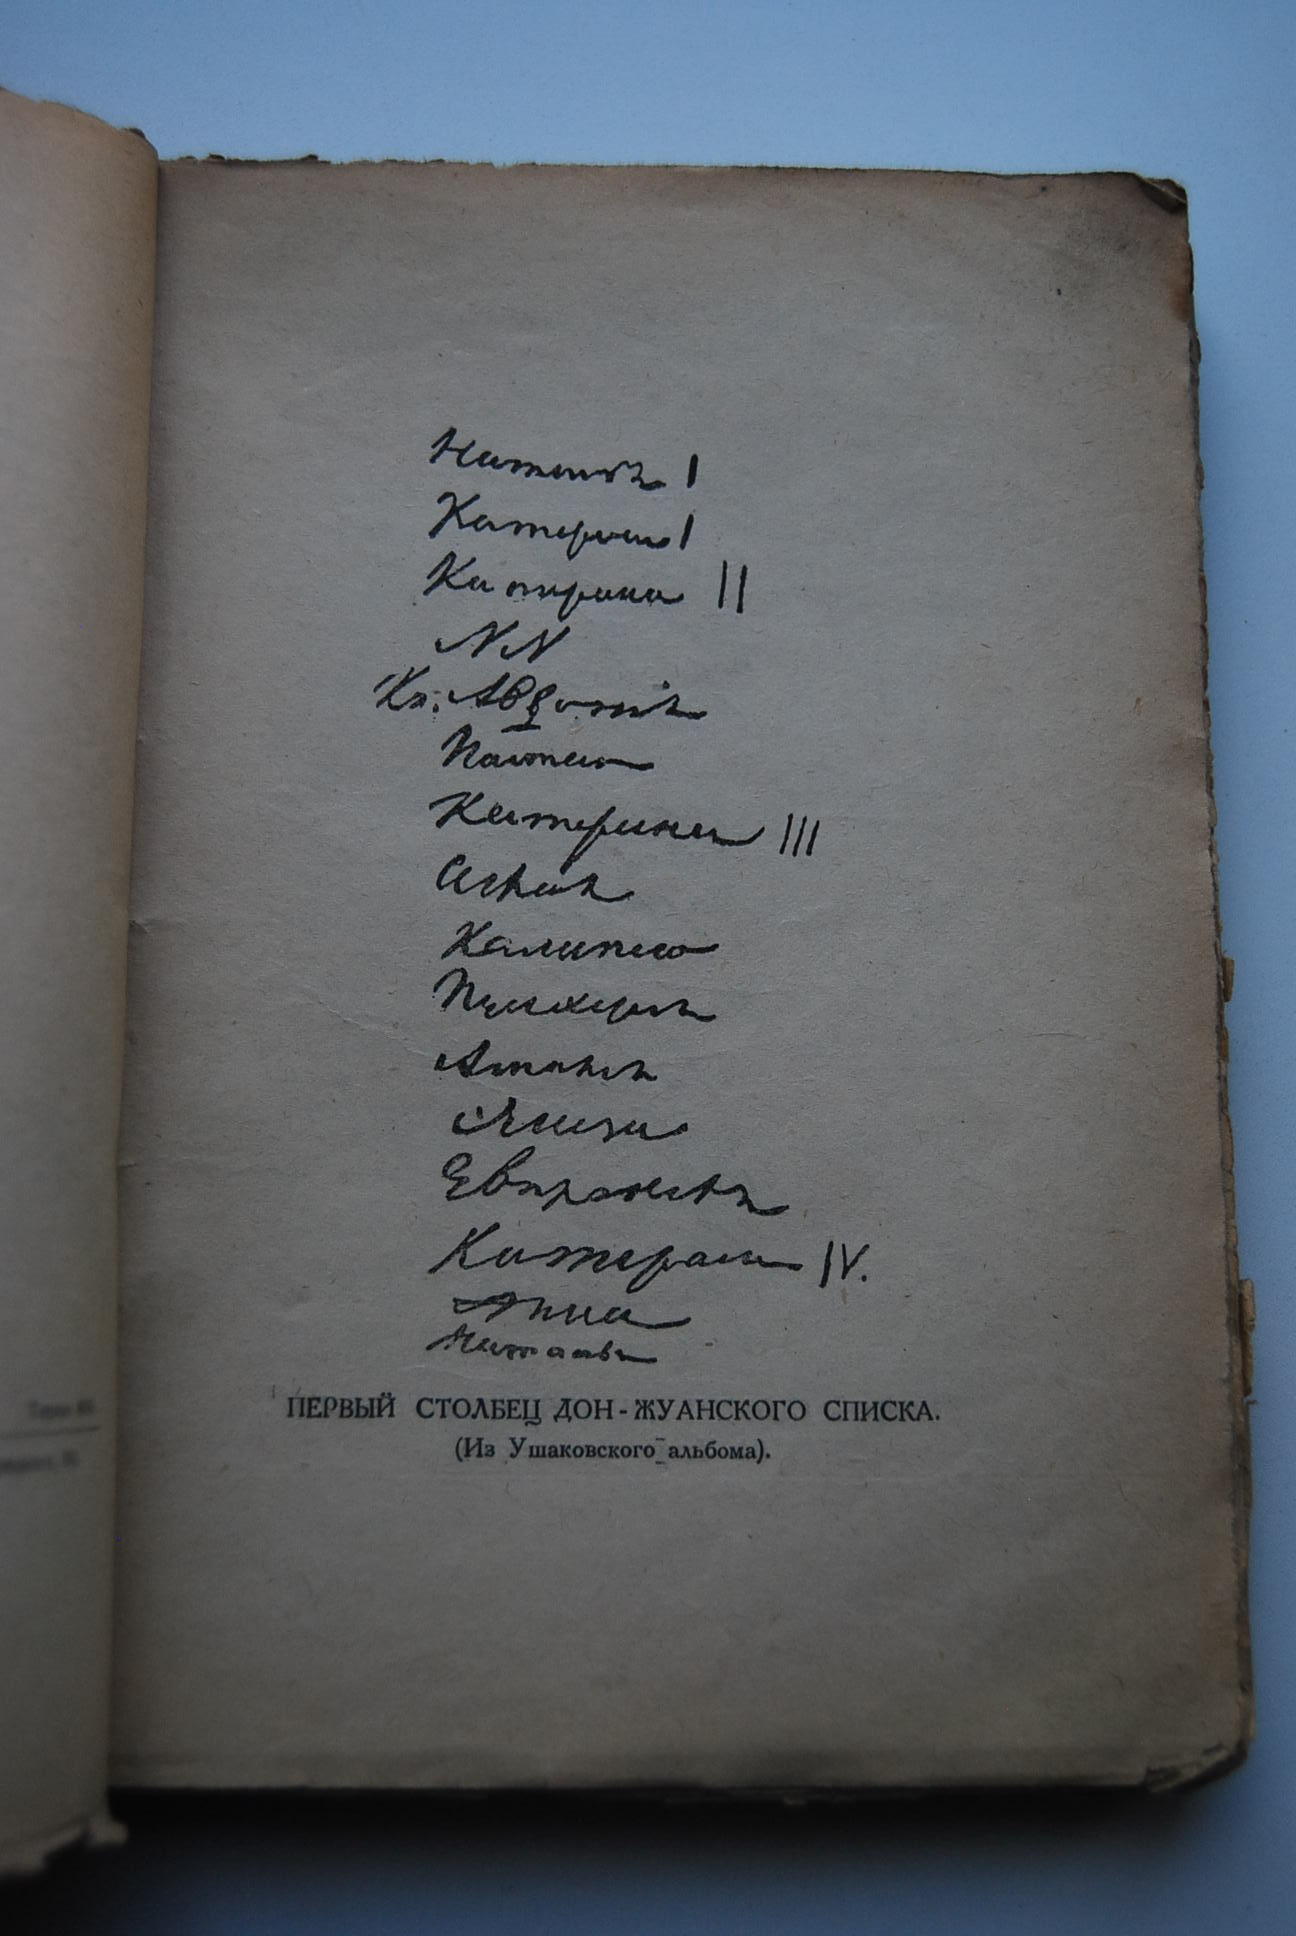 Наталья I
Катерина I
Катерина II
NN
Кн. Авдотия
Настасья
Катерина III
Аглая
Калипсо
Пульхерия
Амалия
Элиза
Евпраксея
Катерина IV.
Анна
Наталья
ПЕРВЫЙ СТОЛБЕЦ ДОН-ЖУАНСКОГО СПИСКА.
(Из Ушаковского альбома).